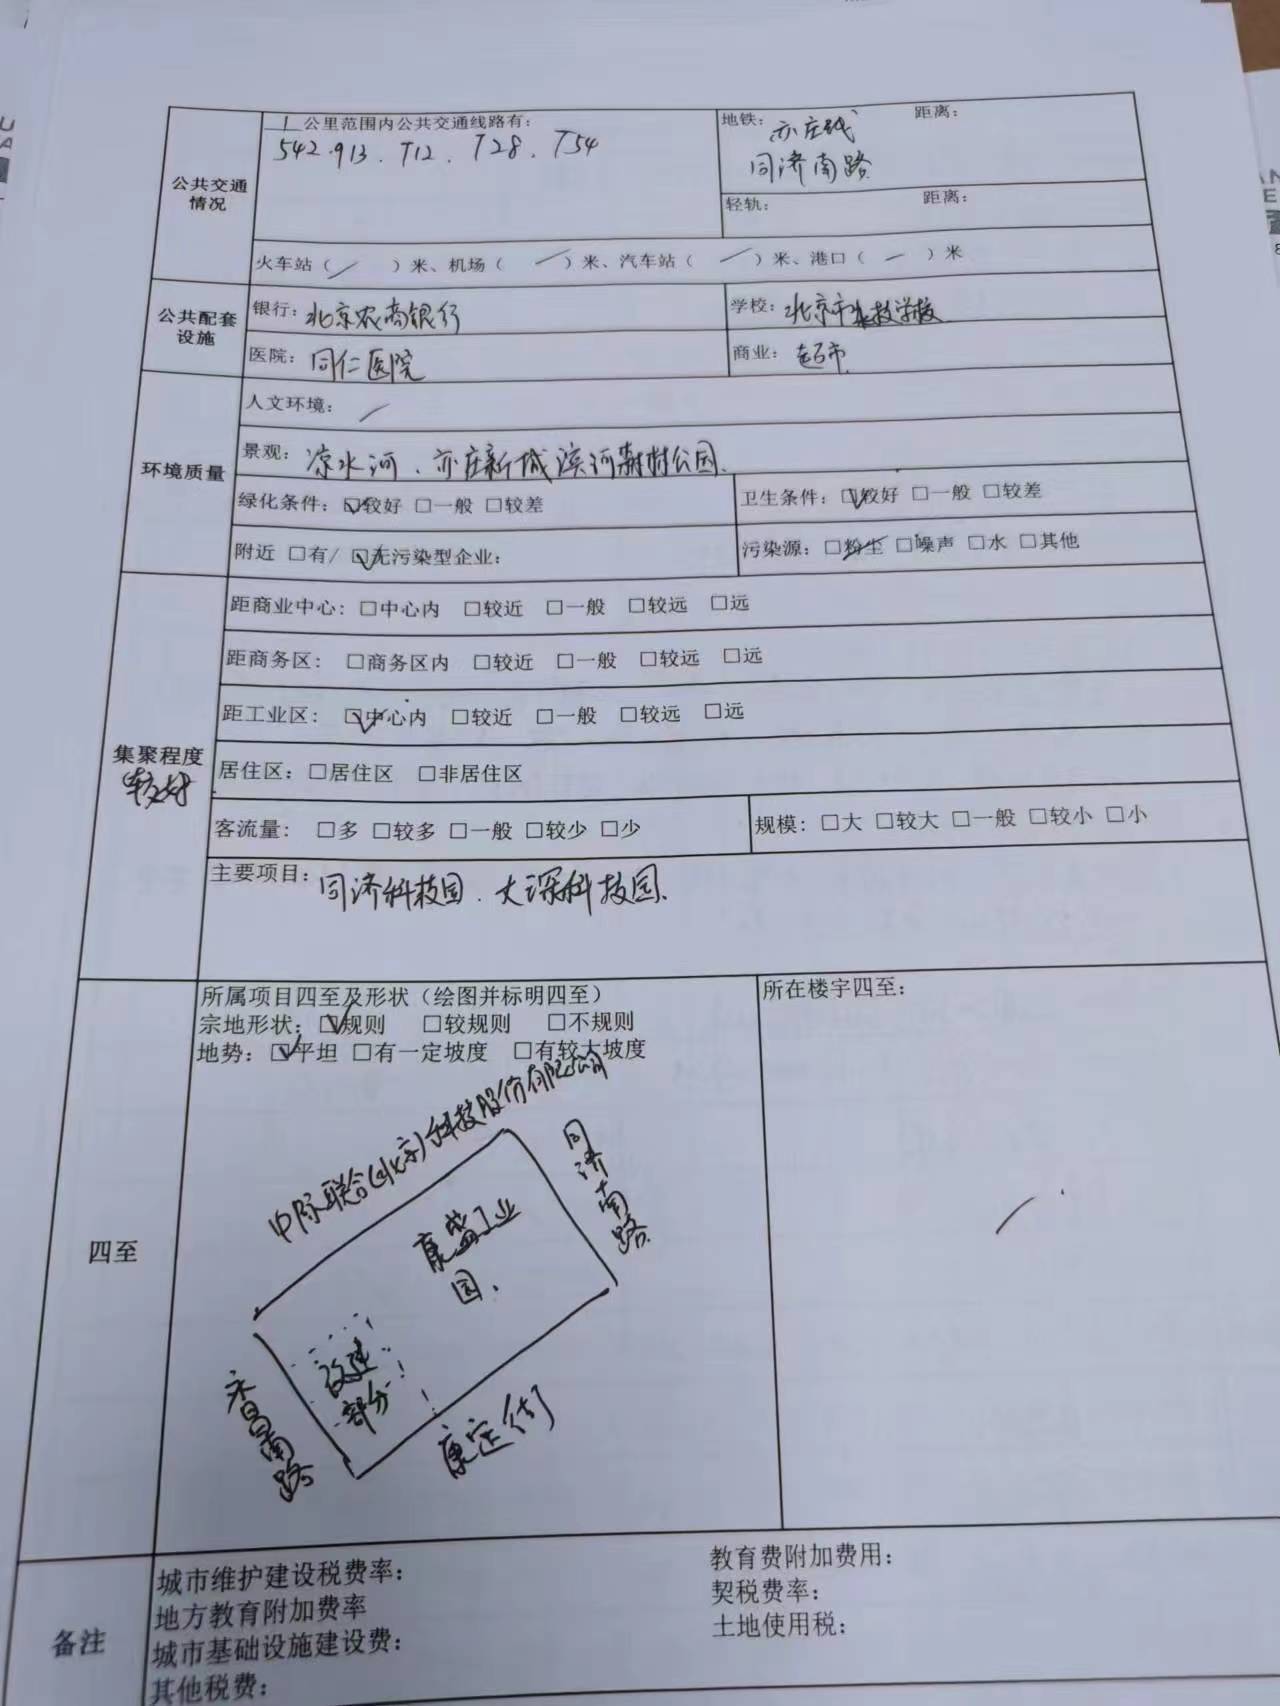 公共交通
情况
1 公里范围内公共交通线路有：
542.913.T12.T28.T54
地铁：亦庄线 距离：
同济南路
轻轨： 距离：
火车站（／）米、机场（／）米、汽车站（／）米、港口（／）米
公共配套
设施
银行：北京农商银行
学校：北京市 学校
医院：同仁医院
商业：超市.
环境质量
人文环境：／
景观：凉水河、亦庄新城滨河森林公园.
绿化条件：☑较好 □一般 □较差
卫生条件：☑较好 □一般 □较差
附近 □有/ ☑无污染型企业：
污染源：□粉尘 □噪声 □水 □其他
集聚程度
较好
距商业中心：□中心内 □较近 □一般 □较远 □远
距商务区：□商务区内 □较近 □一般 □较远 □远
距工业区：☑中心内 □较近 □一般 □较远 □远
居住区：□居住区 □非居住区
客流量：□多 □较多 □一般 □较少 □少
规模：□大 □较大 □一般 □较小 □小
主要项目：同济科技园.大深科技园.
四至
所属项目四至及形状（绘图并标明四至）
宗地形状：☑规则 □较规则 □不规则
地势：☑平坦 □有一定坡度 □有较大坡度
所在楼宇四至：
／
中际联合(北京)科技股份有限公司
同济南路
康盛工业
园.
改建
部分
永昌南路
康定街
备注
城市维护建设税费率：
教育费附加费用：
地方教育附加费率
契税费率：
城市基础设施建设费：
土地使用税：
其他税费：